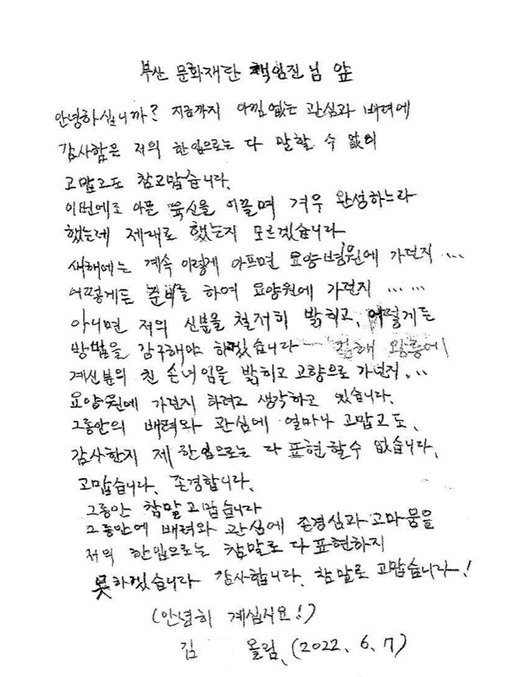 부산 문화재단 책임진님 앞
안녕하십니까? 지금까지 아낌없는 관심과 배려에
감사함은 저의 한입으로는 다 말할 수 없이
고맙고도 참고맙습니다.
이번에도 아픈 육신을 이끌며 겨우 완성하느라
했는데 제대로 했는지 모르겠습니다
새해에는 계속 이렇게 아프면 요양병원에 가던지 ...
어떻게든 준비를 하여 요양원에 가던지 ... ...
아니면 저의 신분을 철저히 밝히고, 어떻게든
방법을 강구해야 하겠습니다 김해 왕릉에
계신분의 친 손녀임을 밝히고 고향으로 가던지...
요양원에 가던지 하려고 생각하고 있습니다.
그동안의 배려와 관심에 얼마나 고맙고도,
감사한지 제 한입으로는 다 표현할수 없습니다.
고맙습니다. 존경합니다.
그동안 참말고맙습니다
그동안에 배려와 관심에 존경심과 고마움을
저의 한입으로는 참말로 다 표현하지
못하겠습니다 감사합니다. 참말로 고맙습니다!
(안녕히 계십시요!)
김 올림. (2022. 6. 7)